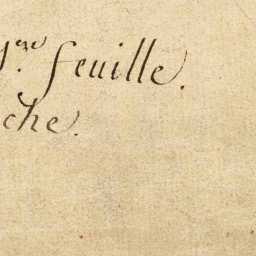 1.ere feuille.
che.